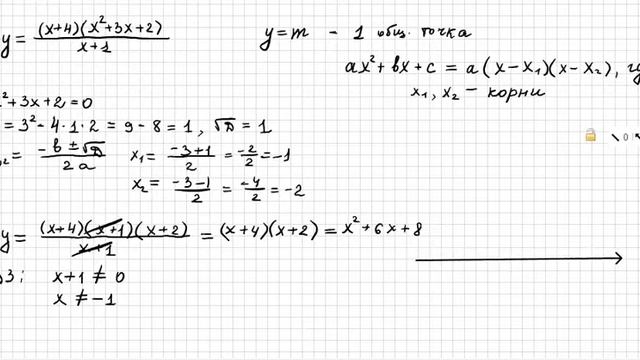 y = (x+4)(x²+3x+2) / x+1
y=m - 1 общ. точка
ax²+bx+c = a(x-x₁)(x-x₂), г
x₁, x₂ - корни
²+3x+2=0
= 3²-4·1·2 = 9-8=1, √D = 1
₂ = -b±√D / 2a
x₁ = -3+1 / 2 = -2 / 2 = -1
x₂ = -3-1 / 2 = -4 / 2 = -2
y = (x+4)(x+1)(x+2) / x+1 = (x+4)(x+2) = x²+6x+8
З: x+1 ≠ 0
x ≠ -1